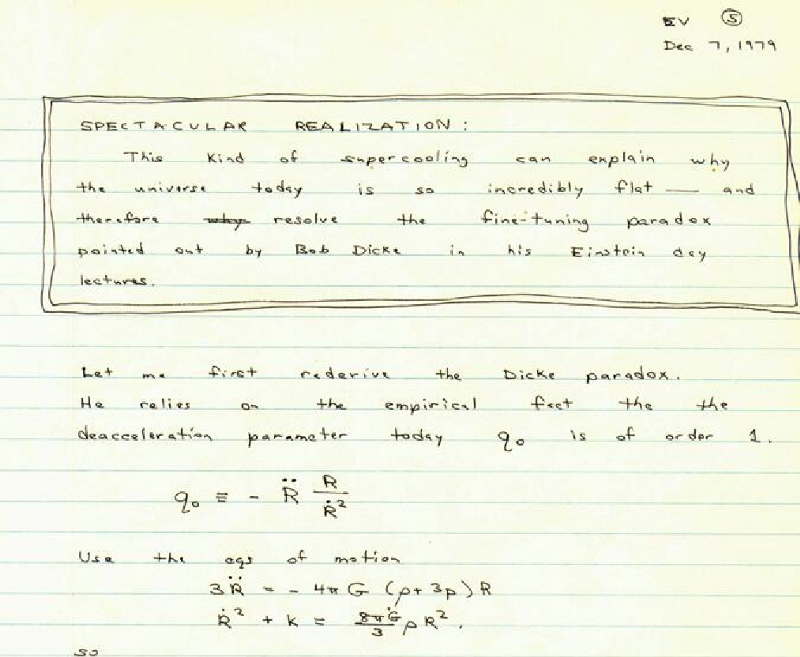 EV ⑤
Dec 7, 1979
SPECTACULAR REALIZATION:
This kind of supercooling can explain why
the universe today is so incredibly flat — and
therefore ~~why~~ resolve the fine-tuning paradox
pointed out by Bob Dicke in his Einstein day
lectures.
Let me first rederive the Dicke paradox.
He relies on the empirical fact the the
deacceleration parameter today q₀ is of order 1.
q₀ ≡ - R̈ R/Ṙ²
Use the eqs of motion
3R̈ = - 4πG (ρ+3p)R
Ṙ² + k = 8πG/3 ρR².
so